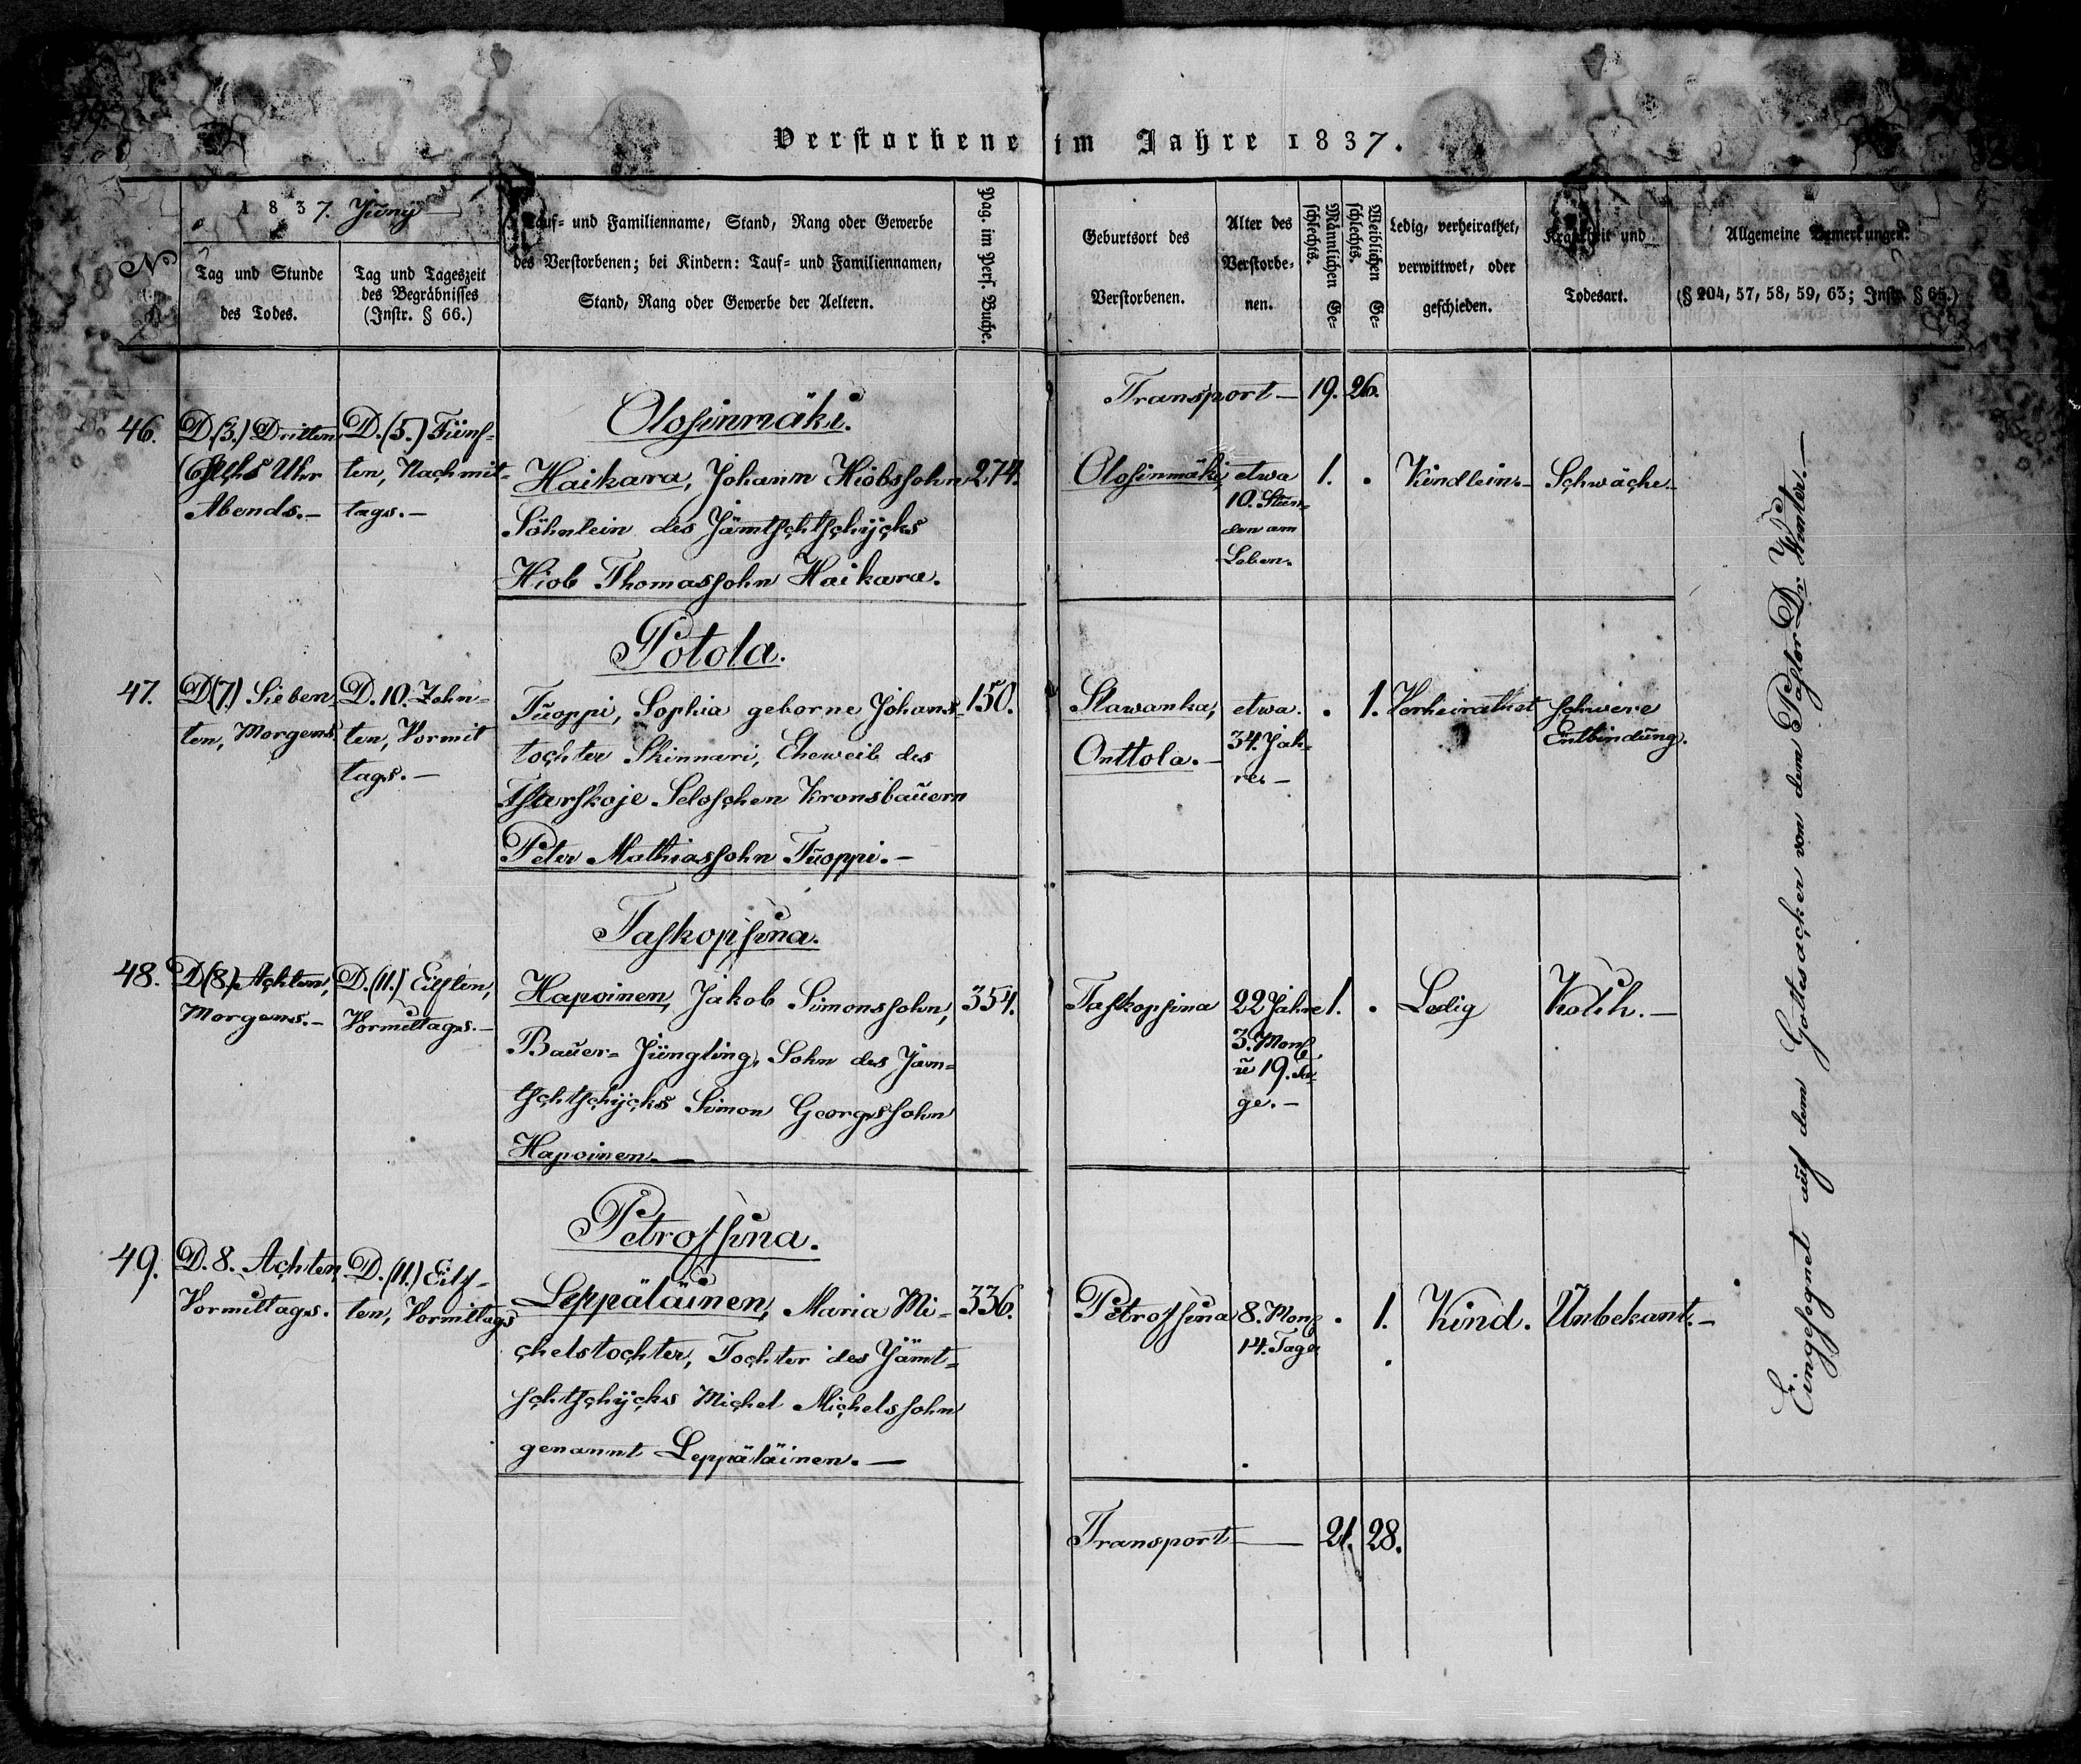 Verstorbene im Jahre 1837.
No
1837. Juny
Tag und Stunde
des Todes.
Tag und Tageszeit
des Begräbnisses
(Instr. § 66.)
Tauf- und Familienname, Stand, Rang oder Gewerbe
des Verstorbenen; bei Kindern: Tauf- und Familiennamen,
Stand, Rang oder Gewerbe der Aeltern.
Pag. im Pers. Buche.
Geburtsort des
Verstorbenen.
Alter des
Verstorbe-
nen.
Männlichen Ge-
schlechts.
Weiblichen Ge-
schlechts.
Ledig, verheirathet,
verwittwet, oder
geschieden.
Krankheit und
Todesart.
Allgemeine Bemerkungen.
(§ 204, 57, 58, 59, 63; Instr. § 65.)
Transport — 19. 26.
46.
D. (3.) Dritten
Sechs Uhr
Abends. —
D. (5.) Fünf-
ten, Nachmit-
tags. —
Olosinmäki.
Haikara, Johann Hiobssohn
Söhnlein des Jämtschtschycks
Hiob Thomassohn Haikara.
274.
Olosinmäki,
etwa
10. Stun-
den am
Leben.
1. .
Kindlein. —
Schwäche. —
47.
D (7.) Sieben
ten, Morgens
D. 10. Zehn-
ten, Vormit
tags. —
Potola.
Tuoppi, Sophia geborne Johans-
tochter Skinnari, Eheweib des
Tsarskoje Seloschen Kronsbauern
Peter Mathiassohn Tuoppi. —
150.
Slawanka,
Onttola. —
etwa
34. Jah-
re. —
. 1.
Verheirathet
schwere
Entbindung.
48.
D (8.) Achten,
Morgens. —
D. (11.) Eilften,
Vormittags. —
Taskopsina.
Hapoinen, Jakob Simonssohn,
Bauer- Jüngling, Sohn des Jäm-
tschtschycks Simon Georgssohn
Hapoinen. —
354.
Taskopsina
22 Jahre
3. Mon
u 19. Ta-
ge. —
1. .
Ledig
Kolik. —
49.
D. 8. Achten
Vormittags.
D. (11.) Eilf-
ten, Vormittags
Petrossina.
Leppäläinen, Maria Mi-
chelstochter, Tochter des Jämt-
schtschycks Michel Michelssohn
genannt Leppäläinen. —
336.
Petrossina
8. Mon
14. Tage
. 1.
Kind.
Unbekant. —
Transport — 21. 28.
Eingesegnet auf dem Gottesacker von dem Pastor Dr.